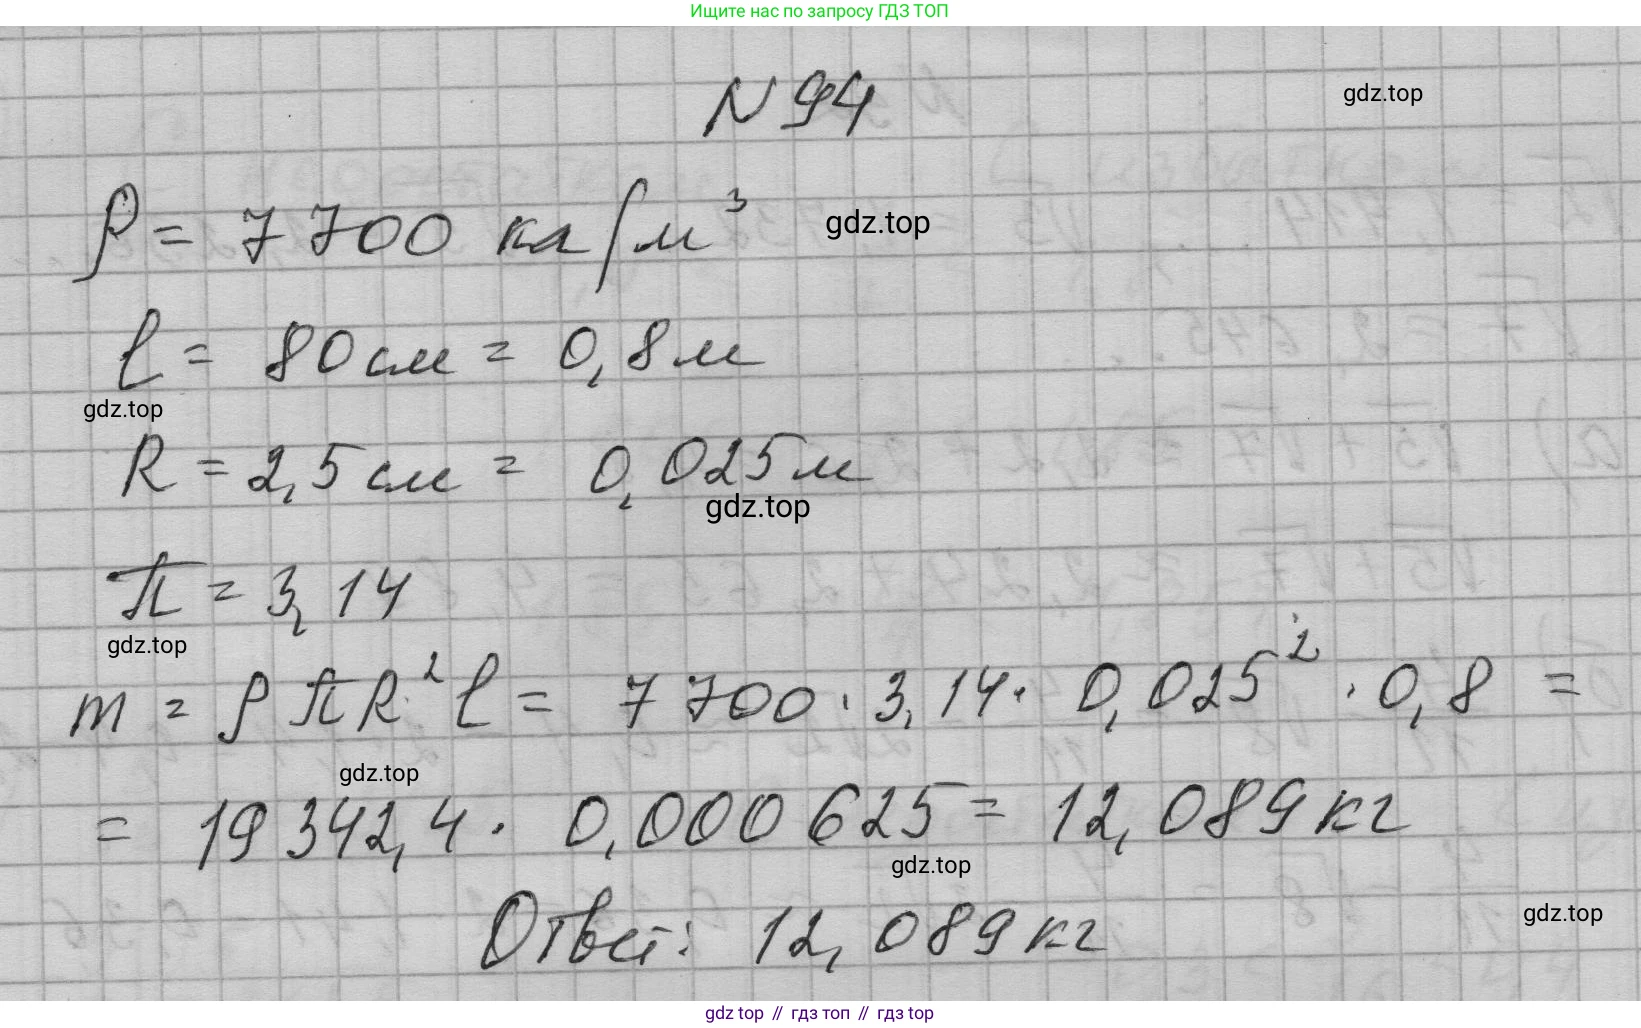 Ищите нас по запросу ГДЗ ТОП
N 94
gdz.top
ρ = 7700 кг/м³
gdz.top
l = 80 см = 0,8 м
gdz.top
R = 2,5 см = 0,025 м
gdz.top
π = 3,14
gdz.top
m = ρπR²l = 7700 · 3,14 · 0,025² · 0,8 =
gdz.top
= 19342,4 · 0,000625 = 12,089 кг
gdz.top
Ответ: 12,089 кг
gdz.top
gdz top // гдз топ // gdz top